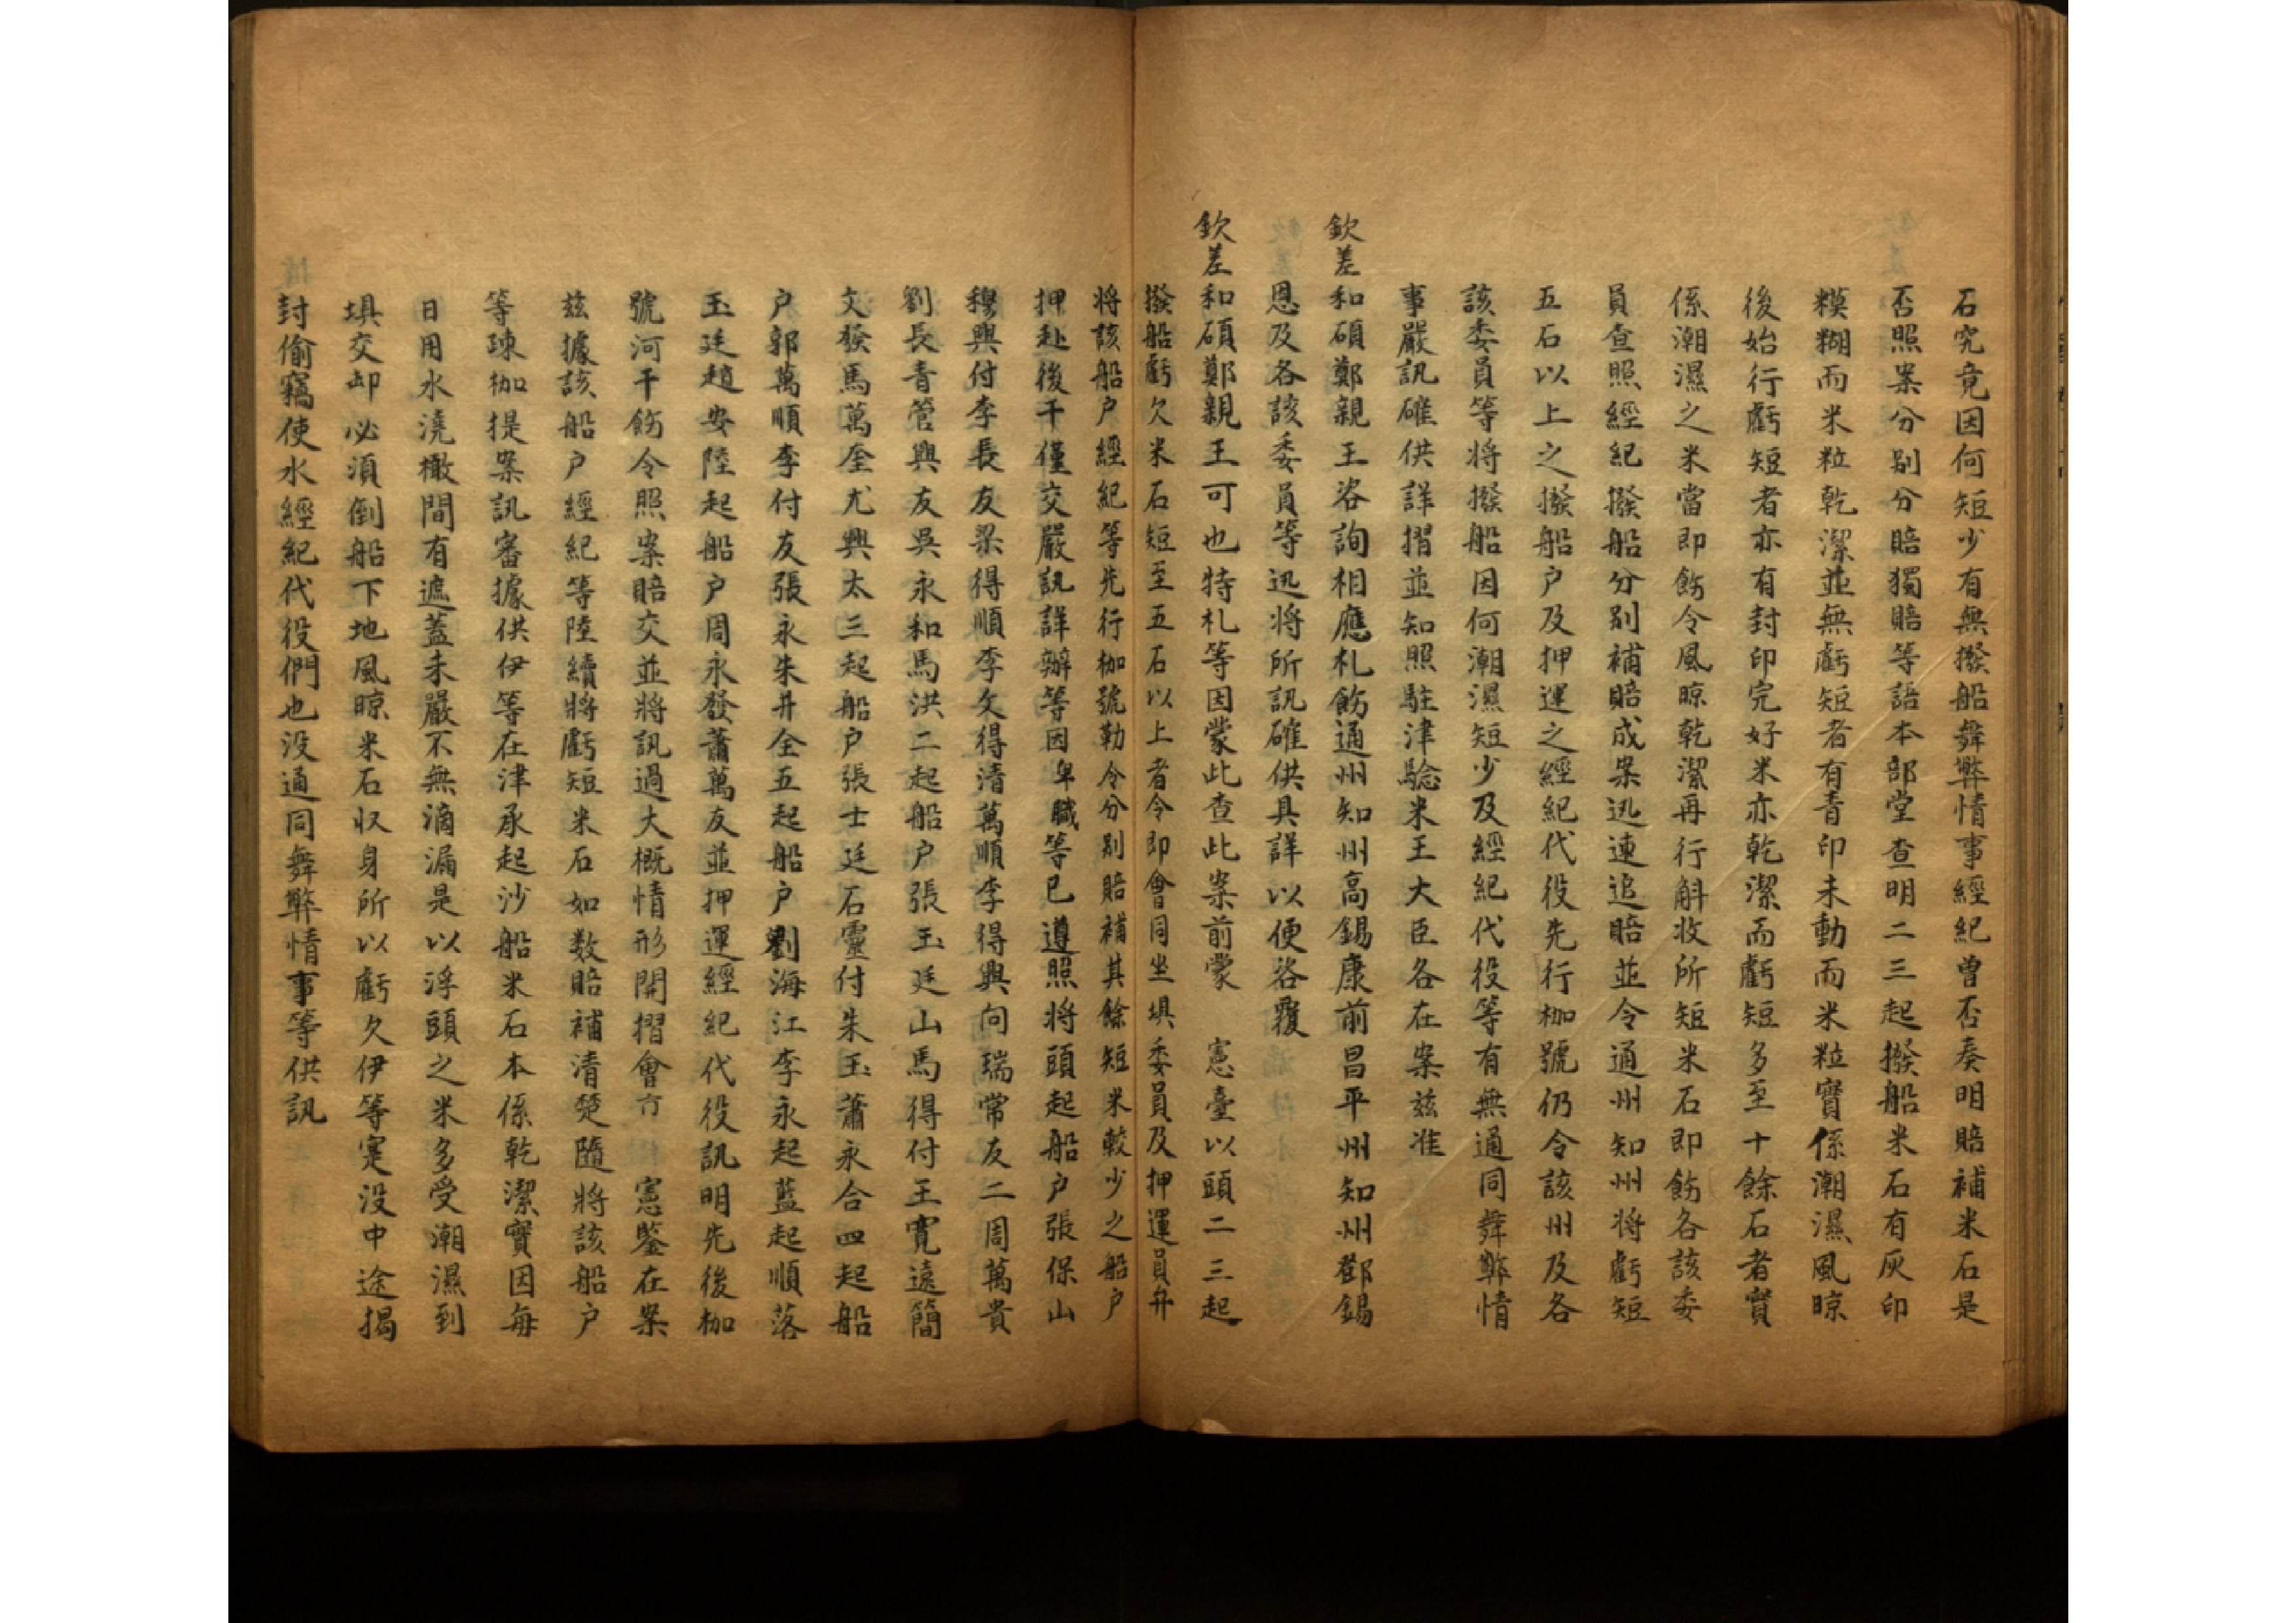 石究竟因何短少有無撥船舞弊情事經紀曾否奏明賠補米石是
否照案分別分賠獨賠等語本部堂查明二三起撥船米石有灰印
糢糊而米粒乾潔並無虧短者有青印未動而米粒實係潮濕風晾
後始行虧短者亦有封印完好米亦乾潔而虧短多至十餘石者實
係潮濕之米當即飭令風晾乾潔再行斛收所短米石即飭各該委
員查照經紀撥船分別補賠成案迅速追賠並令通州知州將虧短
五石以上之撥船户及押運之經紀代役先行枷號仍令該州及各
該委員等将撥船因何潮濕短少及經紀代役等有無通同舞弊情
事嚴訊確供詳摺並知照駐津驗米王大臣各在案兹准
欽差和碩鄭親王咨詢相應札飭通州知州高錫康前昌平州知州鄧錫
恩及各該委員等迅將所訊確供具詳以便咨覆
欽差和碩鄭親王可也特札等因蒙此查此案前蒙 憲臺以頭二三起
撥船虧欠米石短至五石以上者令即會同坐埧委員及押運員弁
将該船户經紀等先行枷號勒令分別賠補其餘短米較少之船户
押赴後干僅交嚴訊詳辦等因卑職等已遵照将頭起船户張保山
穆興付李長友梁得順李文得清萬順李得興向瑞常友二周萬貴
劉長青管興友吳永和馬洪二起船户張玉廷山馬得付王寬遠簡
文發馬萬全尤興太三起船户張士廷石靈付朱玉蕭永合四起船
户郭萬順李付友張永朱井全五起船户劉海江李永起藍起順落
玉廷趙安陸起船户周永發蕭萬友並押運經紀代役訊明先後枷
號河干飭令照案賠交並將訊過大概情形開摺會 憲鑒在案
兹據該船户經紀等陸續將虧短米石如数賠補清楚隨將該船户
等竦枷提案訊審據供伊等在津承起沙船米石本係乾潔實因每
日用水澆橄間有遮蓋未嚴不無滴漏是以浮頭之米多受潮濕到
埧交卸必須倒船下地風晾米石收身所以虧欠伊等寔没中途揭
封偷竊使水經紀代役們也没通同舞弊情事等供訊